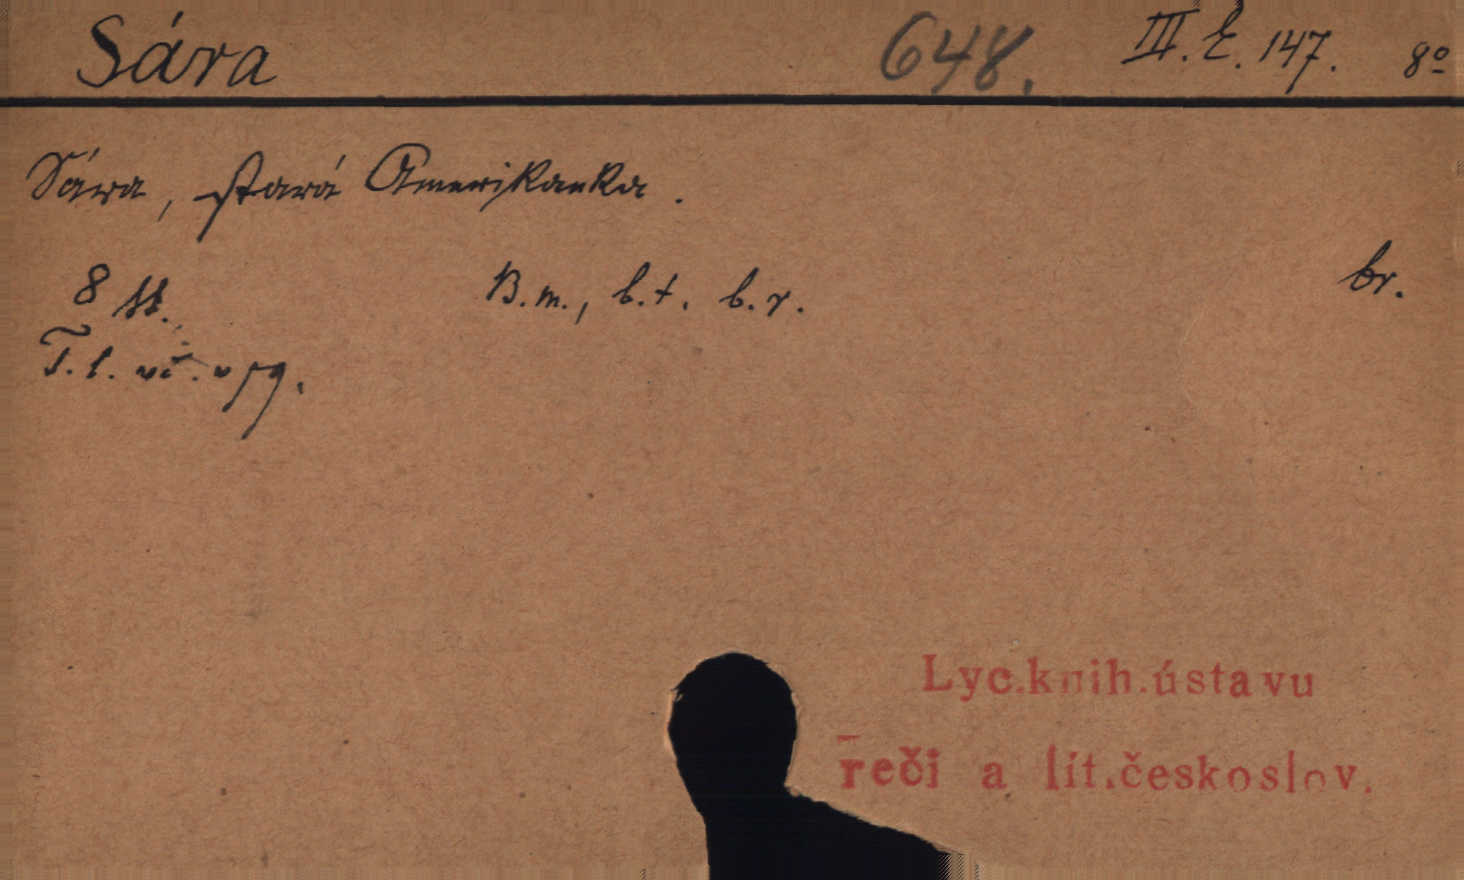 Sára 648. III. E. 147. 8º
Sára, stará Amerikanka.
8 ll. B. m., b. t. b. r. br.
T. l.
Lyc. knih. ústavu
řeči a lit. českoslov.